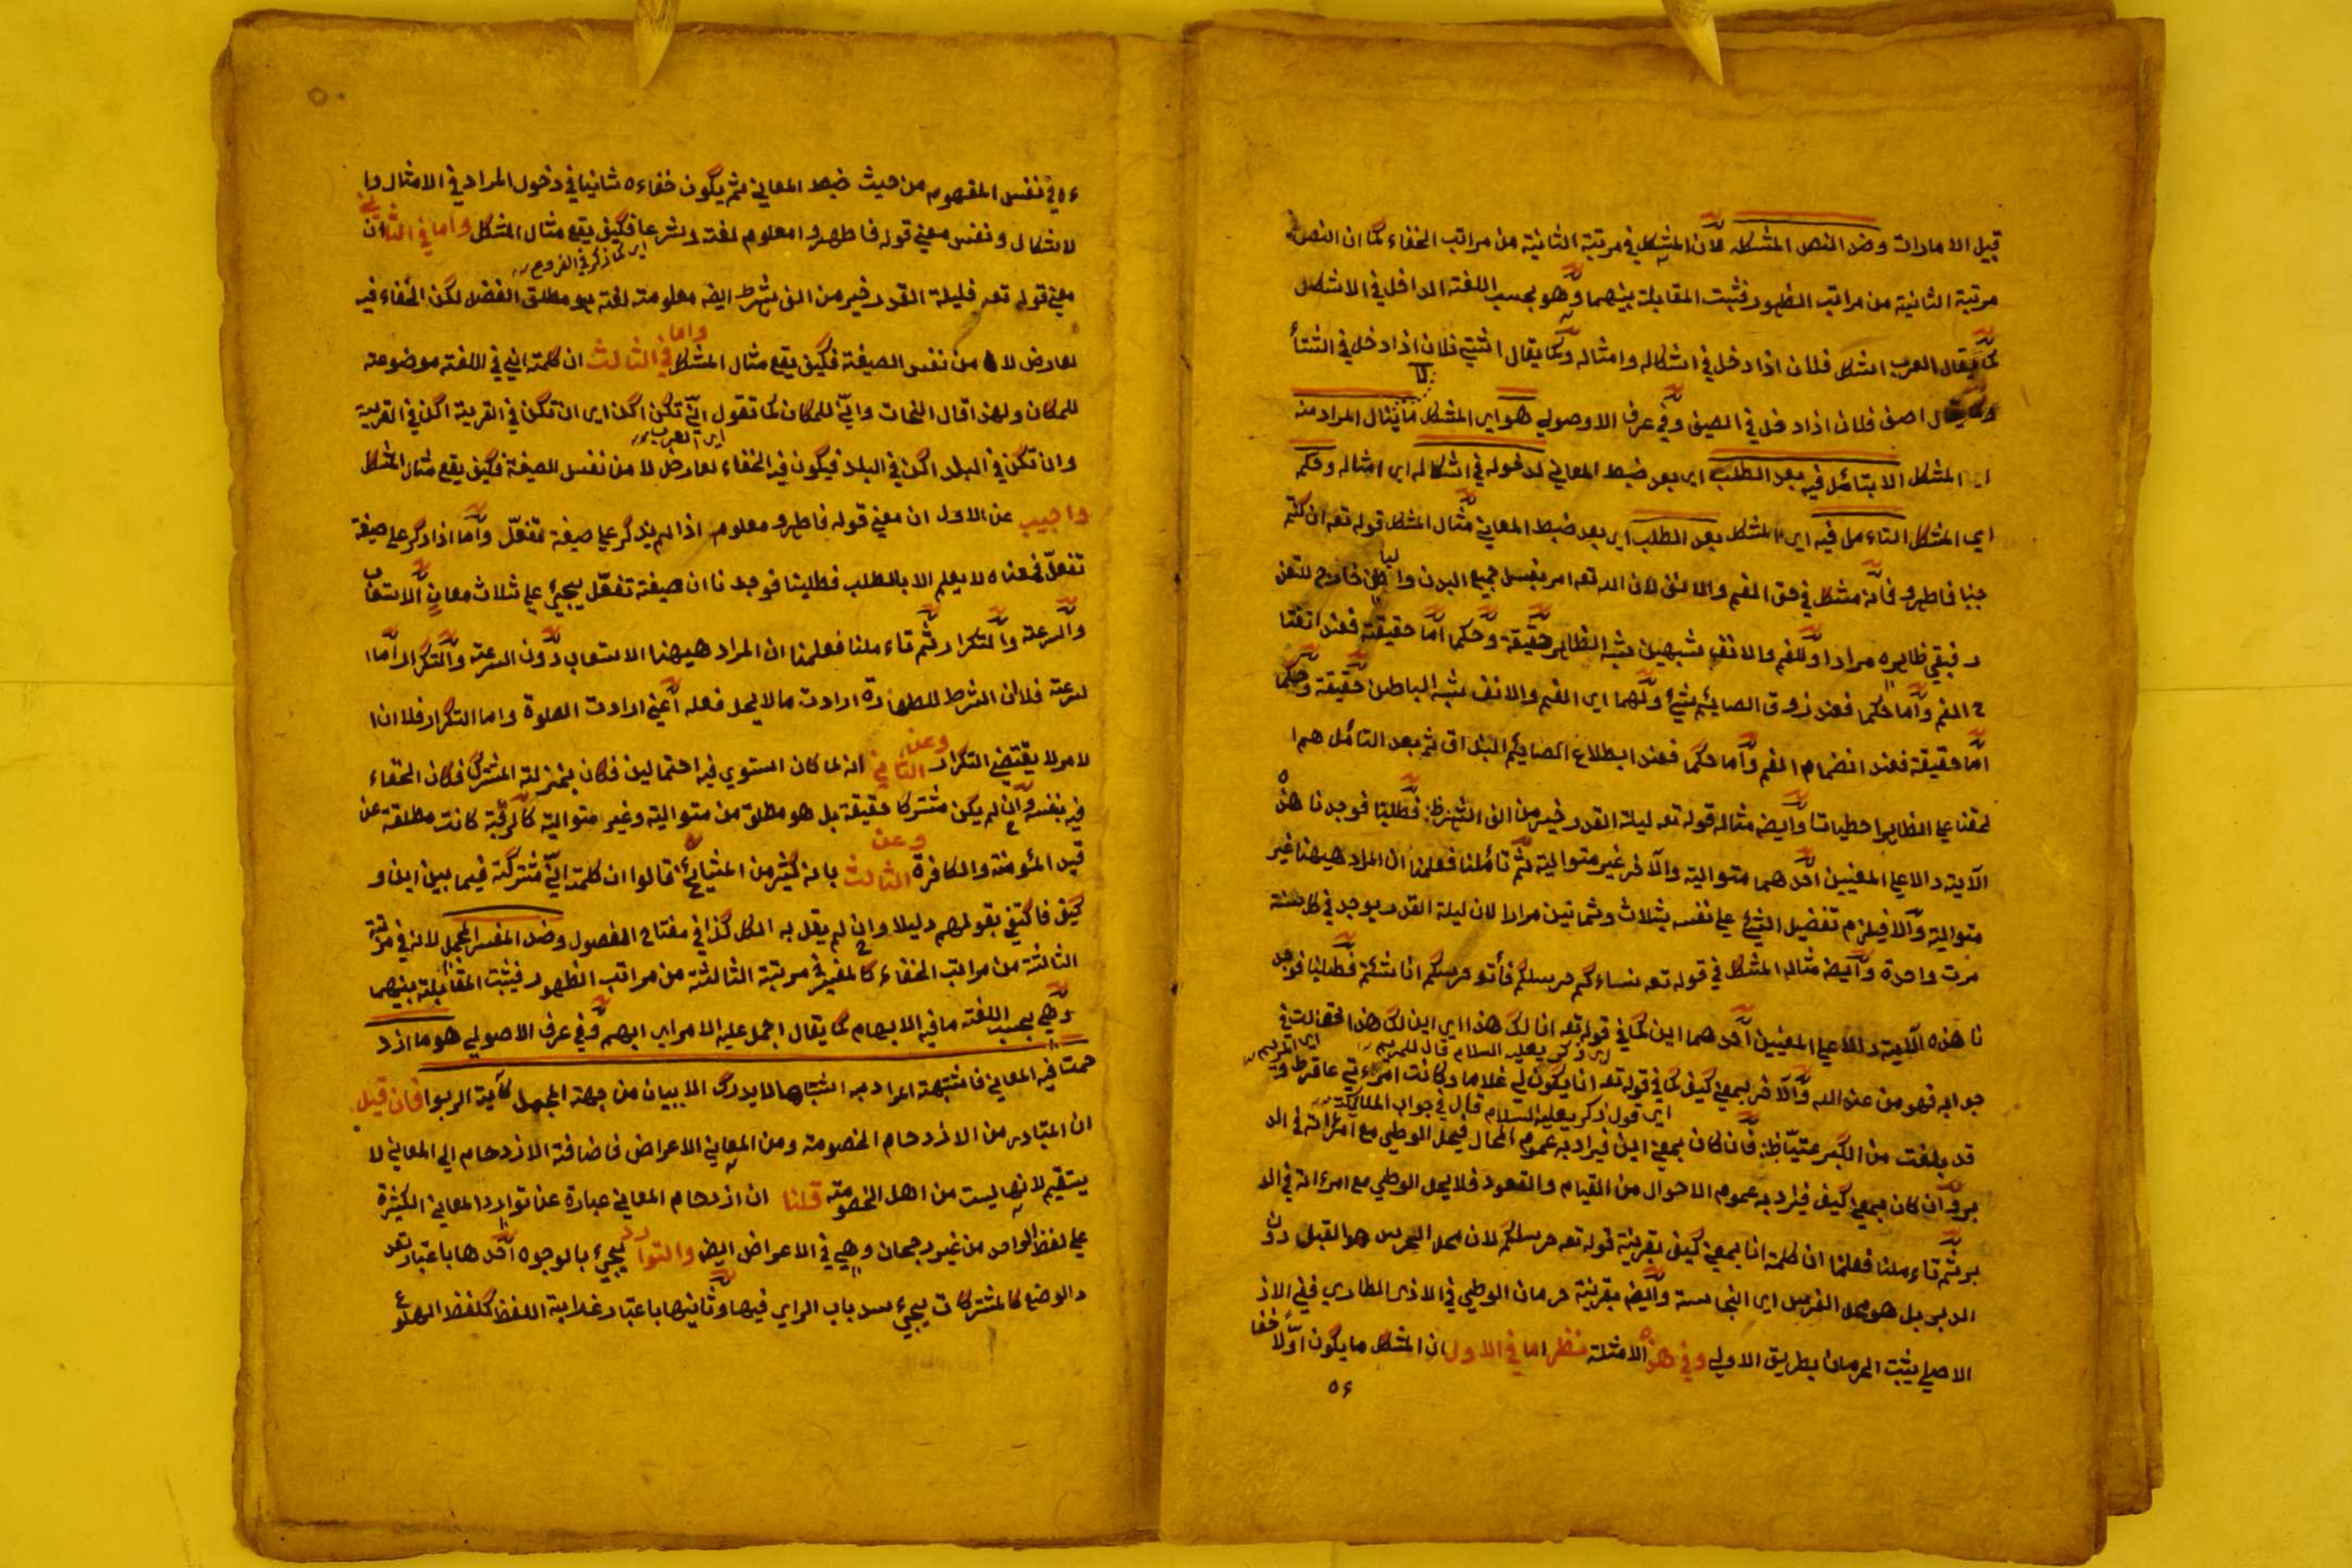 قبيل الامارات وضد النص المشكله لان المشكل في مرتبة الثانية من مراتب الخفاء كما ان النص في
مرتبة الثانية من مراتب الظهور فثبت المقابلة بينهما وهو بحسب اللغة الداخل في الاشكال
كما يقال العرب اشكل فلان اذا دخل في اشكاله وامثاله وكما يقال اشتى فلان اذا دخل في الشتأ
وكما يقال اصف فلان اذا دخل في المصيف وفي عرف الاوصولي هو اي المشكل ما ينال المراد منه
اي المشكل الا بتامل فيه بعد الطلب اي بعد ضبط المعاني لدخوله في اشكاله اي امثاله وحكم
اي المشكل التاءمل فيه اي المشكل بعد الطلب اي بعد ضبط المعاني مثال المشكل قوله تعه ان كنتم
جنبا فاطهروا فانه مشكل في حق الفم والانف لان الله تعه امر بغسل جميع البدن والباطن خارج للتعذ
ر فبقي ظاهره مرادا وللفم والانف شبهين شبه الظاهر حقيقة وحكما اما حقيقة فعند انفتا
ح الفم واما حكما فعند ذوق الصايم شيء ولهما اي الفم والانف شبه الباطن حقيقة وحكما
اما حقيقة فعند انضمام الفم واما حكما فعند ابطلاع الصايم البذاق ثم بعد التامل هم ا
لحقنا على الظاهر احطياتا وايضه مثاله قوله تعه ليلة القدر خير من الف شهر فطلبنا فوجدنا هذه
الآية دالا على المعنيين احدهما متوالية والآخر غير متوالية ثم تاملنا فعلمنا ان المراد هيهنا غير
متوالية والا فيلزم تفضيل الشيء على نفسه بثلاث وثمانين مرارا لان ليلة القدر يوجد في كل سنة
مرت واحدة وايضه مثال المشكل في قوله تعه نساءكم حرسلكم فأتو حرسكم انا شئتم فطلبنا فوجد
نا هذه الآية دالا على المعنيين احدهما اين كما في قوله تعه انا لك هذا اي اين لك هذا فقالت في
اي ذكر يعليه السلام قال للمريم اي المريم
جوابه فهو من عند الله والآخر بمعنى كيف كما في قوله تعه انا يكون لي غلاما وكانت امرءتي عاقرا وقد
اي قول ذكر يعليه السلام قال في جواب الملايكة
قد بلغت من الكبر عتيا فان كان بمعنى اين فيراد به عموم المحال فيحل الوطي مع امرءاته في الد
بر وان كان بمعنى كيف فيراد به عموم الاحوال من القيام والقعود فلا يحل الوطي مع امرءاته في الد
بر ثم تاءملنا فعلمنا ان كلمة انا بمعنى كيف بقرينة قوله تعه حرسلكم لان محل الحرس هو القبل دون
الدبر بل هو محل الفرس اي النجاسة وايضه بقرينة حرمان الوطي في الاذى الطاري ففي الاذ
الاصلي يثبت الحرمان بطريق الاولى وفي هذه الامثلة نظر اما في الاول ان المشكل ما يكون اولا خفا
ءه
ءه في نفس المفهوم من حيث ضبط المعاني ثم يكون خفاءه ثانيا في دخول المراد في الامثال وا
لاشكال ونفس معنى قوله فاطهروا معلوم لغته وشرعا فكيف يقع مثال المشكل واما في الثاني ان
اي كما ذكر في الفروع
معنى قوله تعه فليلة القدر خير من الف شهر ايضه معلومته لغته هو مطلق الفضل لكن الخفاء فيه
لعارض لا من نفس الصيغة فكيف يقع مثال المشكل واما في الثالث ان كلمة انى في اللغة موضوعته
للمكان ولهذا قال النحات وانى للمكان كما تقول انى تكن اكن اي ان تكن في القرية اكن في القرية
اي العرب
وان تكن في البلد اكن في البلد فيكون فيه الخفاء لعارض لا من نفس الصيغة فكيف يقع مثال المشكل
واجيب عن الاول ان معنى قوله فاطهروا معلوم اذا لم يذكر على صيغة تفعل واما اذا ذكر على صيغة
تفعل فمعناه لا يعلم الا بالطلب فطلبنا فوجدنا ان صيغة تفعل يجيء على ثلاث معان الاستعاب
والسرعته والتكرار ثم تاءملنا فعلمنا ان المراد هيهنا الاستعاب دون السرعته والتكرار اما ا
لسرعته فلان الشرط للطهارة ارادت ما لا يحل فعله اعني ارادت الصلوة واما التكرار فلان ا
لامر لا يقتضي التكرار وعن الثاني انه لما كان استوي فيه احتمالين فكان بمنزلة المشترك فكان الخفاء
فيه بنفسه وان لم يكن مشتركا حقيقة بل هو مطلق من متوالية وغير متوالية كالرقبة كانت مطلقة عن
قيد المؤمنة والكافرة وعن الثالث بانه كثير من المشايخ قالوا ان كلمة انى مشتركة فيما بين اين و
كيف فاكتفى بقولهم دليلا وان لم يقل به الكل كذا في مفتاح المفصول وضد المفسر المجمل لانه في مرتبة
الثالثة من مراتب الخفاء كالمفسر في مرتبة الثالثة من مراتب الظهور فيثبت المقابلة بينهما
وهي بحسب اللغته ما فيه الابهام كما يقال اجمل عليه الامر اي ابهم وفي عرف الاصولي هو ما ازد
حمت فيه المعاني فاشتبهته المراد به اشتباها لا يدرك الا ببيان من جهة المجمل كآية الربوا فان قيل
ان المتبادر من الازدحام الخصومته ومن المعاني الاعراض فاضافة الازدحام الى المعاني لا
يستقيم لانها ليست من اهل الخصومته قلنا ان ازدحام المعاني عبارة عن توارد المعاني الكثيرة
على لفظ الواحد من غير رجحان وهي في الاعراض ايضه والتوارد يجيء بالوجوه احدها باعتبار تعد
د الوضع كالمشتركات يجيء سد باب الراي فيها وثانيها باعتبار غرابة اللفظ كلفظ الهلوع